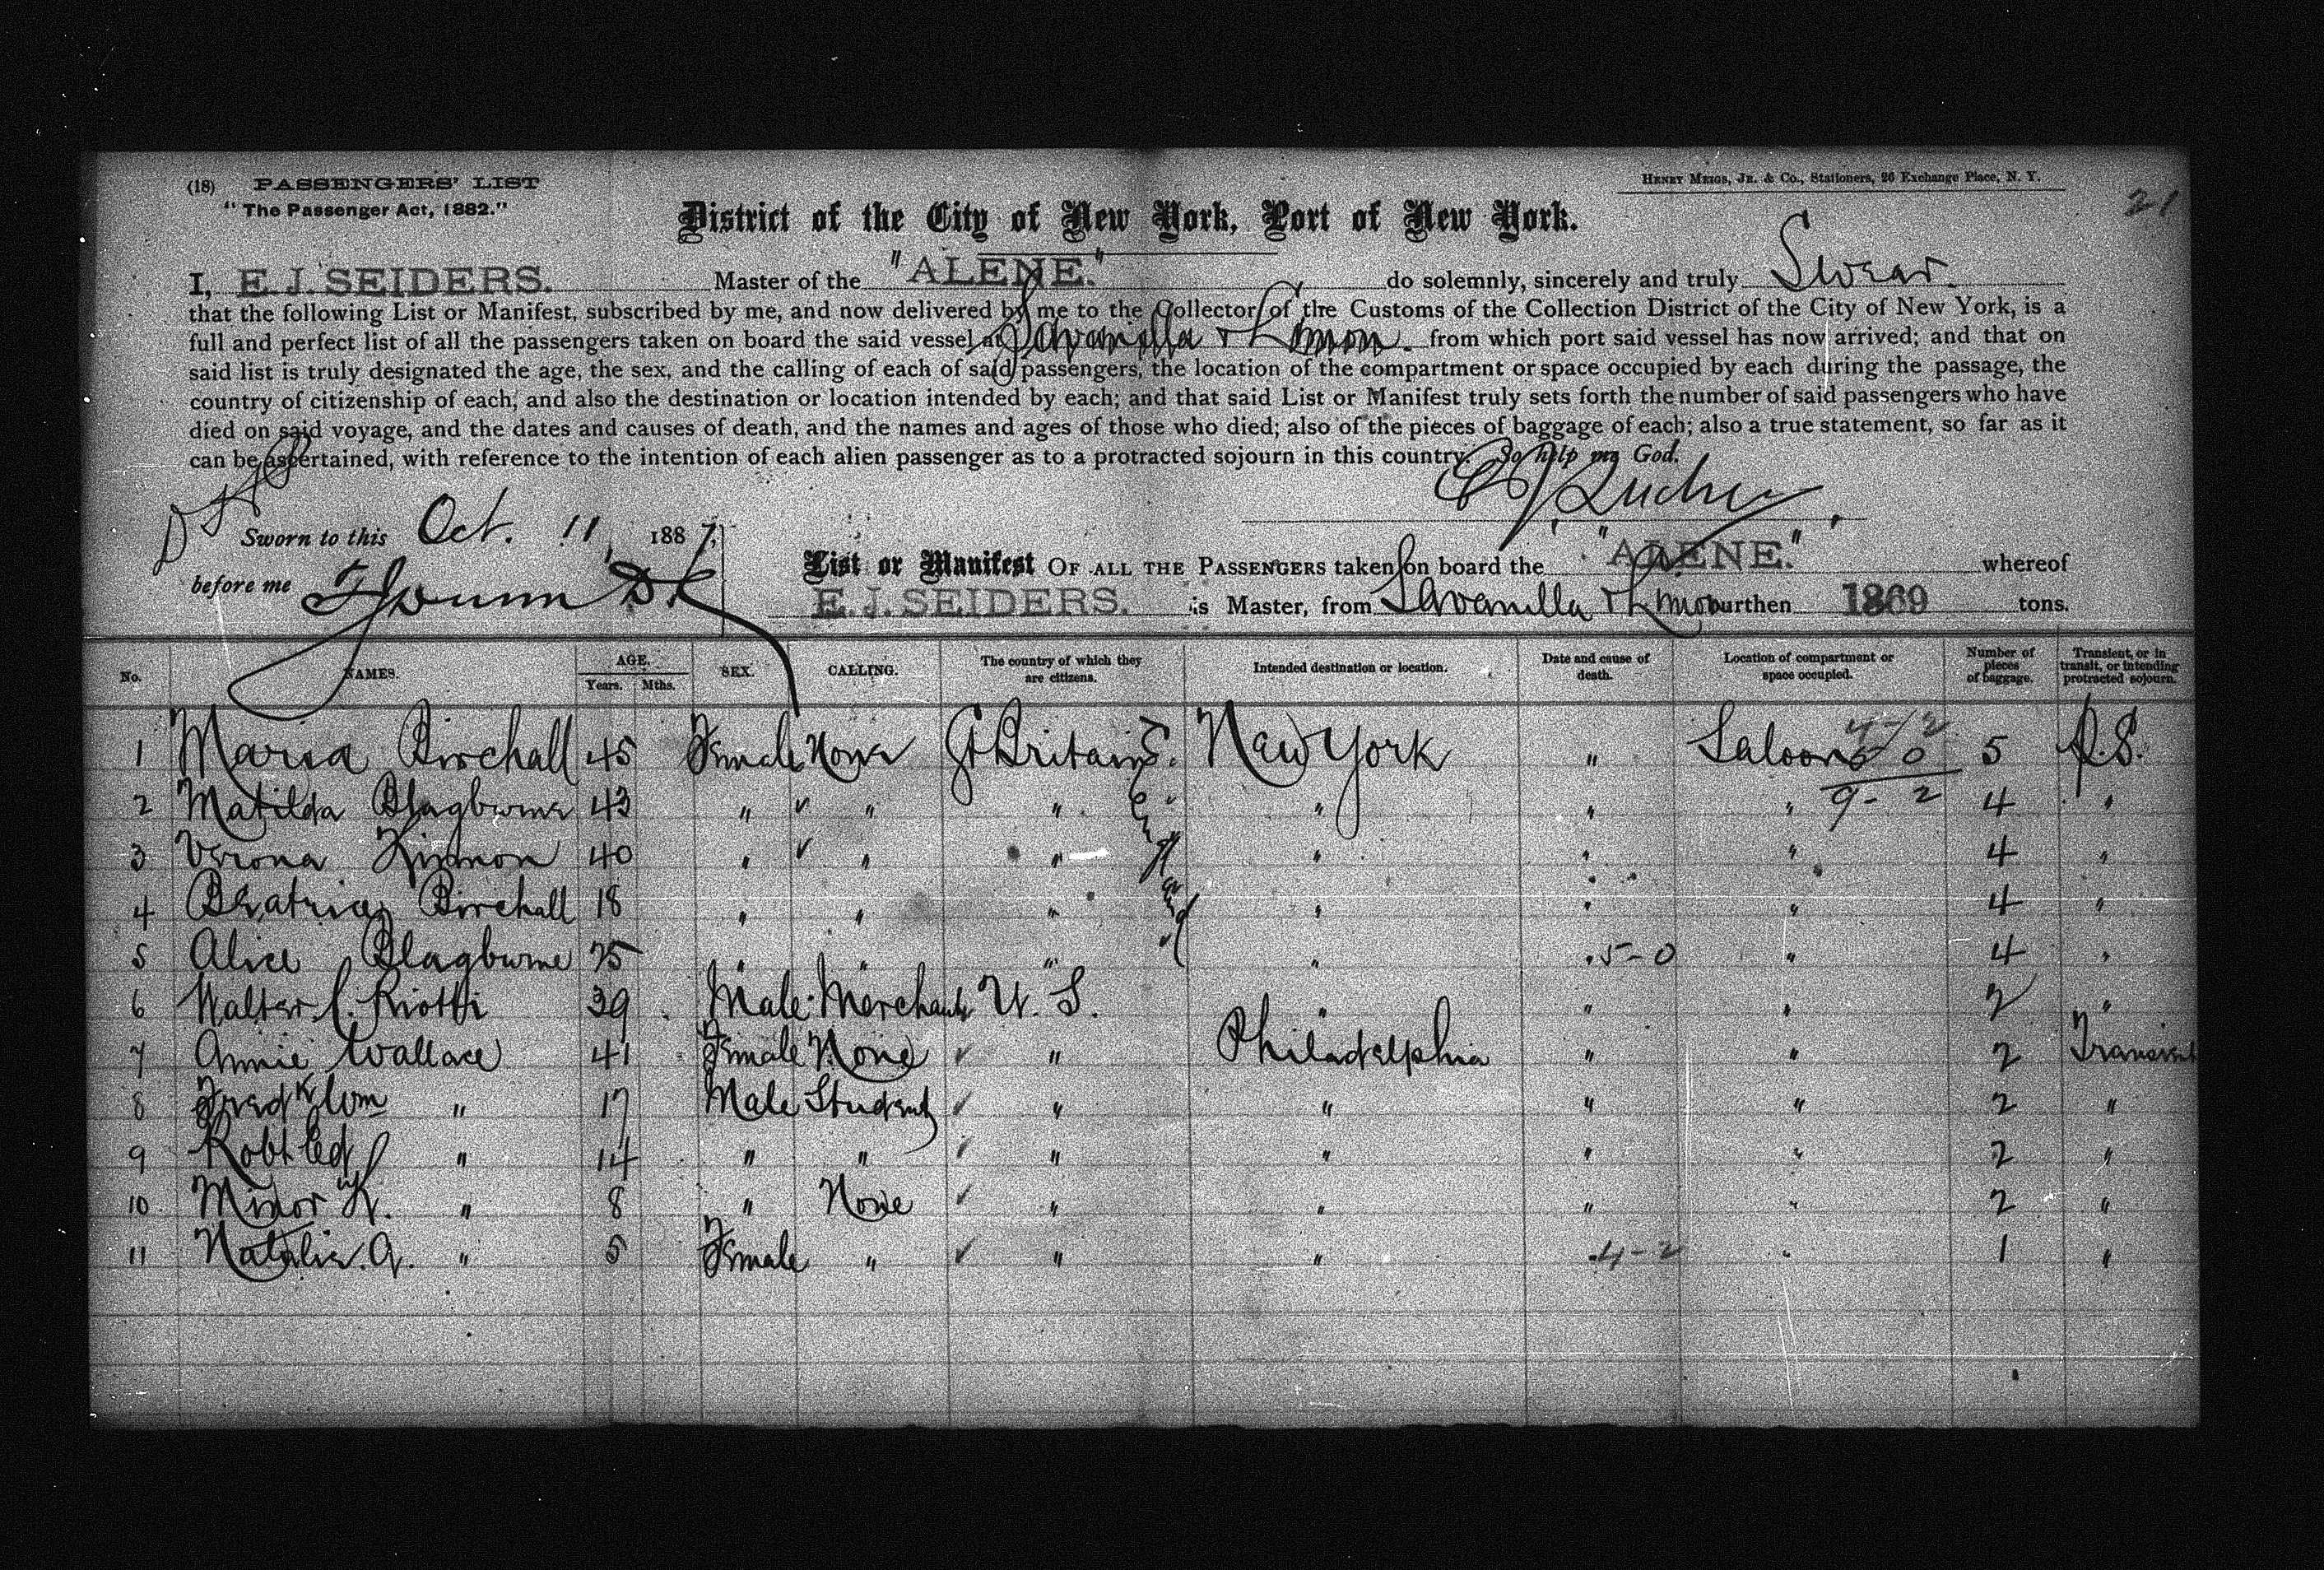 (18) PASSENGERS' LIST
"The Passenger Act, 1882."
HENRY MEIGS, JR. & CO., Stationers, 26 Exchange Place, N. Y.
21
District of the City of New York, Port of New York.
I, E. J. SEIDERS. Master of the "ALENE." do solemnly, sincerely and truly Swear.
that the following List or Manifest, subscribed by me, and now delivered by me to the Collector of the Customs of the Collection District of the City of New York, is a
full and perfect list of all the passengers taken on board the said vessel at Savanilla & Limon. from which port said vessel has now arrived; and that on
said list is truly designated the age, the sex, and the calling of each of said passengers, the location of the compartment or space occupied by each during the passage, the
country of citizenship of each, and also the destination or location intended by each; and that said List or Manifest truly sets forth the number of said passengers who have
died on said voyage, and the dates and causes of death, and the names and ages of those who died; also of the pieces of baggage of each; also a true statement, so far as it
can be ascertained, with reference to the intention of each alien passenger as to a protracted sojourn in this country. So help me God.
Sworn to this Oct. 11, 1887.
before me
List or Manifest OF ALL THE PASSENGERS taken on board the "ALENE." whereof
E. J. SEIDERS. is Master, from Savanilla & Limon burthen 1869 tons.
No. NAMES. AGE. Years. Mths. SEX. CALLING. The country of which they are citizens. Intended destination or location. Date and cause of death. Location of compartment or space occupied. Number of pieces of baggage. Transient, or in transit, or intending protracted sojourn.
1 Maria Birchall 45 Female None Gt Britain New York " Saloon 4-2 5 0 5 P.S.
2 Matilda Blagburne 43 " " " " " " 9-2 4 "
3 Verona Kinmon 40 " " " " " " 4 "
4 Beatrice Birchall 18 " " " " " " 4 "
5 Alice Blagburne 25 " " " " 5-0 " 4 "
England
6 Walter C. 39 Male Merchant U. S. " " " 2 "
7 Annie Wallace 41 Female None " Philadelphia " " 2 Transient
8 Fredk Wm " 17 Male Student " " " " 2 "
9 Robt Ed " 14 " " " " " " 2 "
10 Minor K. " 8 " None " " " " 2 "
11 Natalie. A. " 5 Female " " " 4-2 " 1 "